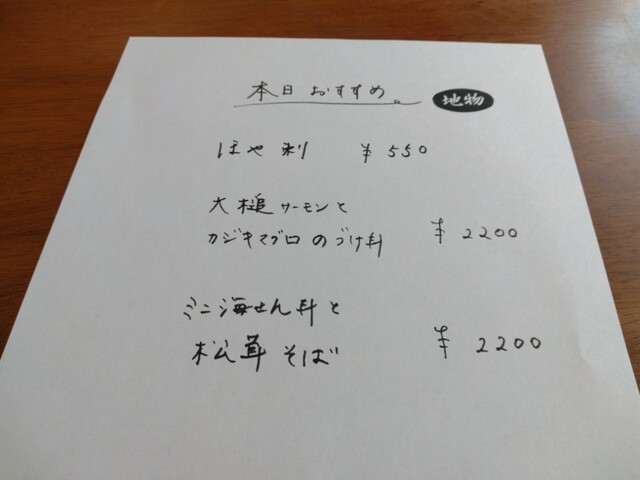 本日おすすめ。 地物
ほや刺 ¥550
大槌サーモンと
カジキマグロのづけ丼 ¥2200
ミニ海せん丼と
松茸そば ¥2200